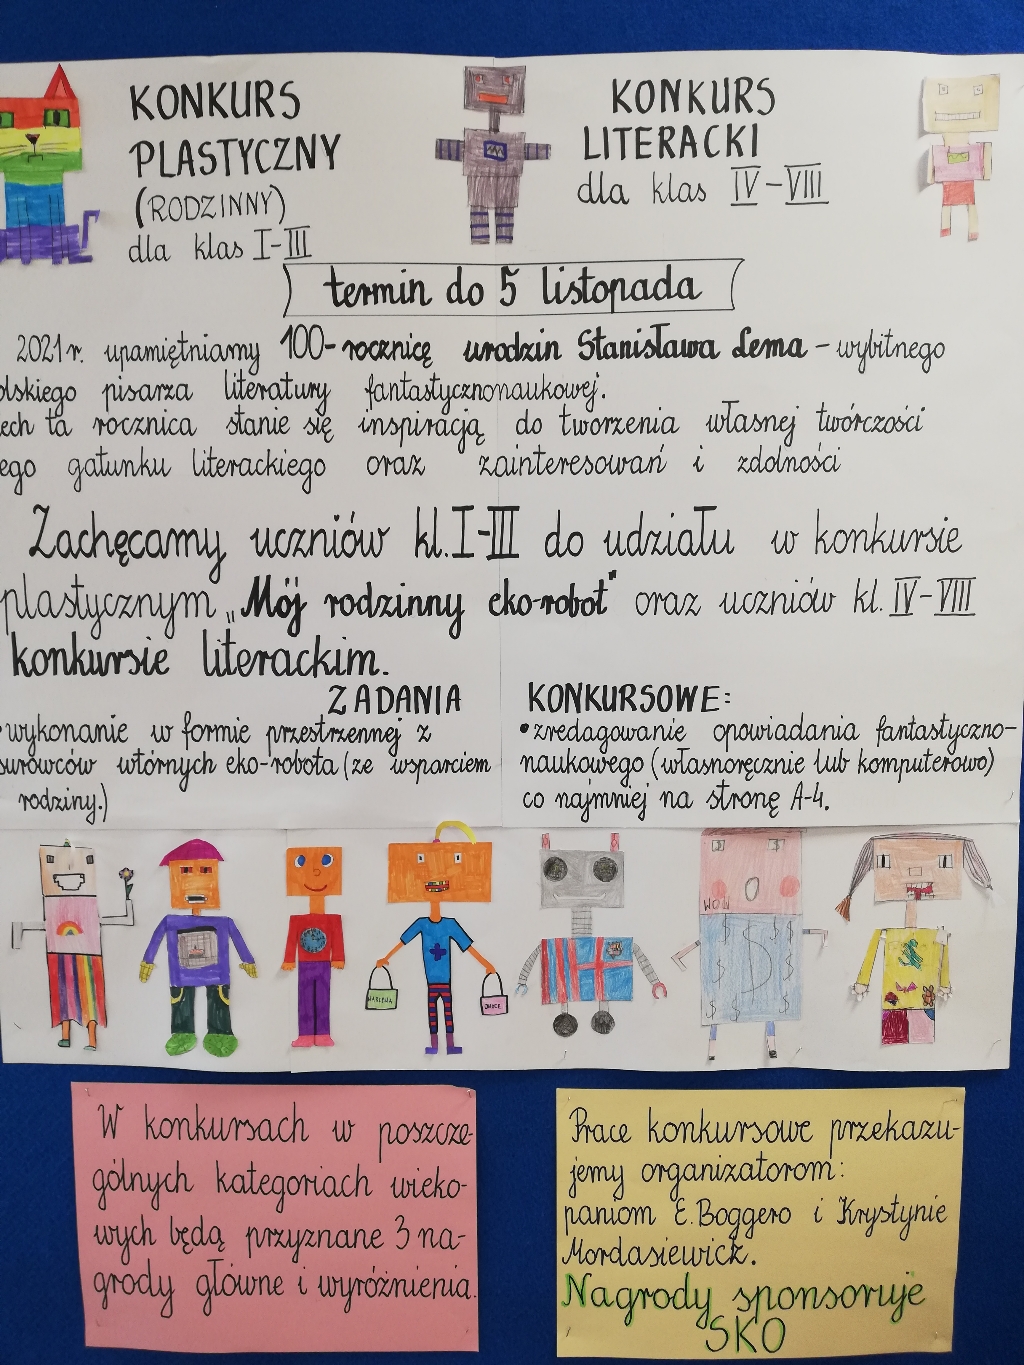 KONKURS
PLASTYCZNY
(RODZINNY)
dla klas I-III
KONKURS
LITERACKI
dla klas IV-VIII
termin do 5 listopada
2021r. upamiętniamy 100-rocznicę urodzin Stanisława Lema - wybitnego
olskiego pisarza literatury fantastycznonaukowej.
iech ta rocznica stanie się inspiracją do tworzenia własnej twórczości
ego gatunku literackiego oraz zainteresowań i zdolności
Zachęcamy uczniów kl. I-III do udziału w konkursie
plastycznym „Mój rodzinny eko-robot" oraz uczniów kl. IV-VIII
konkursie literackim.
ZADANIA KONKURSOWE:
• wykonanie w formie przestrzennej z
surowców wtórnych eko-robota (ze wsparciem
rodziny.)
• zredagowanie opowiadania fantastyczno-
naukowego (własnoręcznie lub komputerowo)
co najmniej na stronę A-4.
MARLENA
WOW
W konkursach w poszcze-
gólnych kategoriach wieko-
wych będą przyznane 3 na-
grody główne i wyróżnienia.
Prace konkursowe przekazu-
jemy organizatorom:
paniom E. Boggero i Krystynie
Mordasiewicz.
Nagrody sponsoruje
SKO